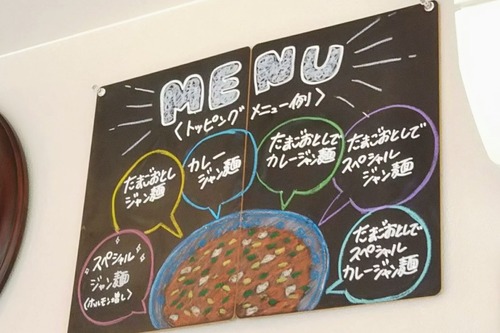 MENU
〈トッピングメニュー例〉
たまごおとし
ジャン麺
カレー
ジャン麺
たまごおとしで
カレージャン麺
たまごおとしで
スペシャル
ジャン麺
スペシャル
ジャン麺
〈ホルモン増し〉
たまごおとしで
スペシャル
カレージャン麺